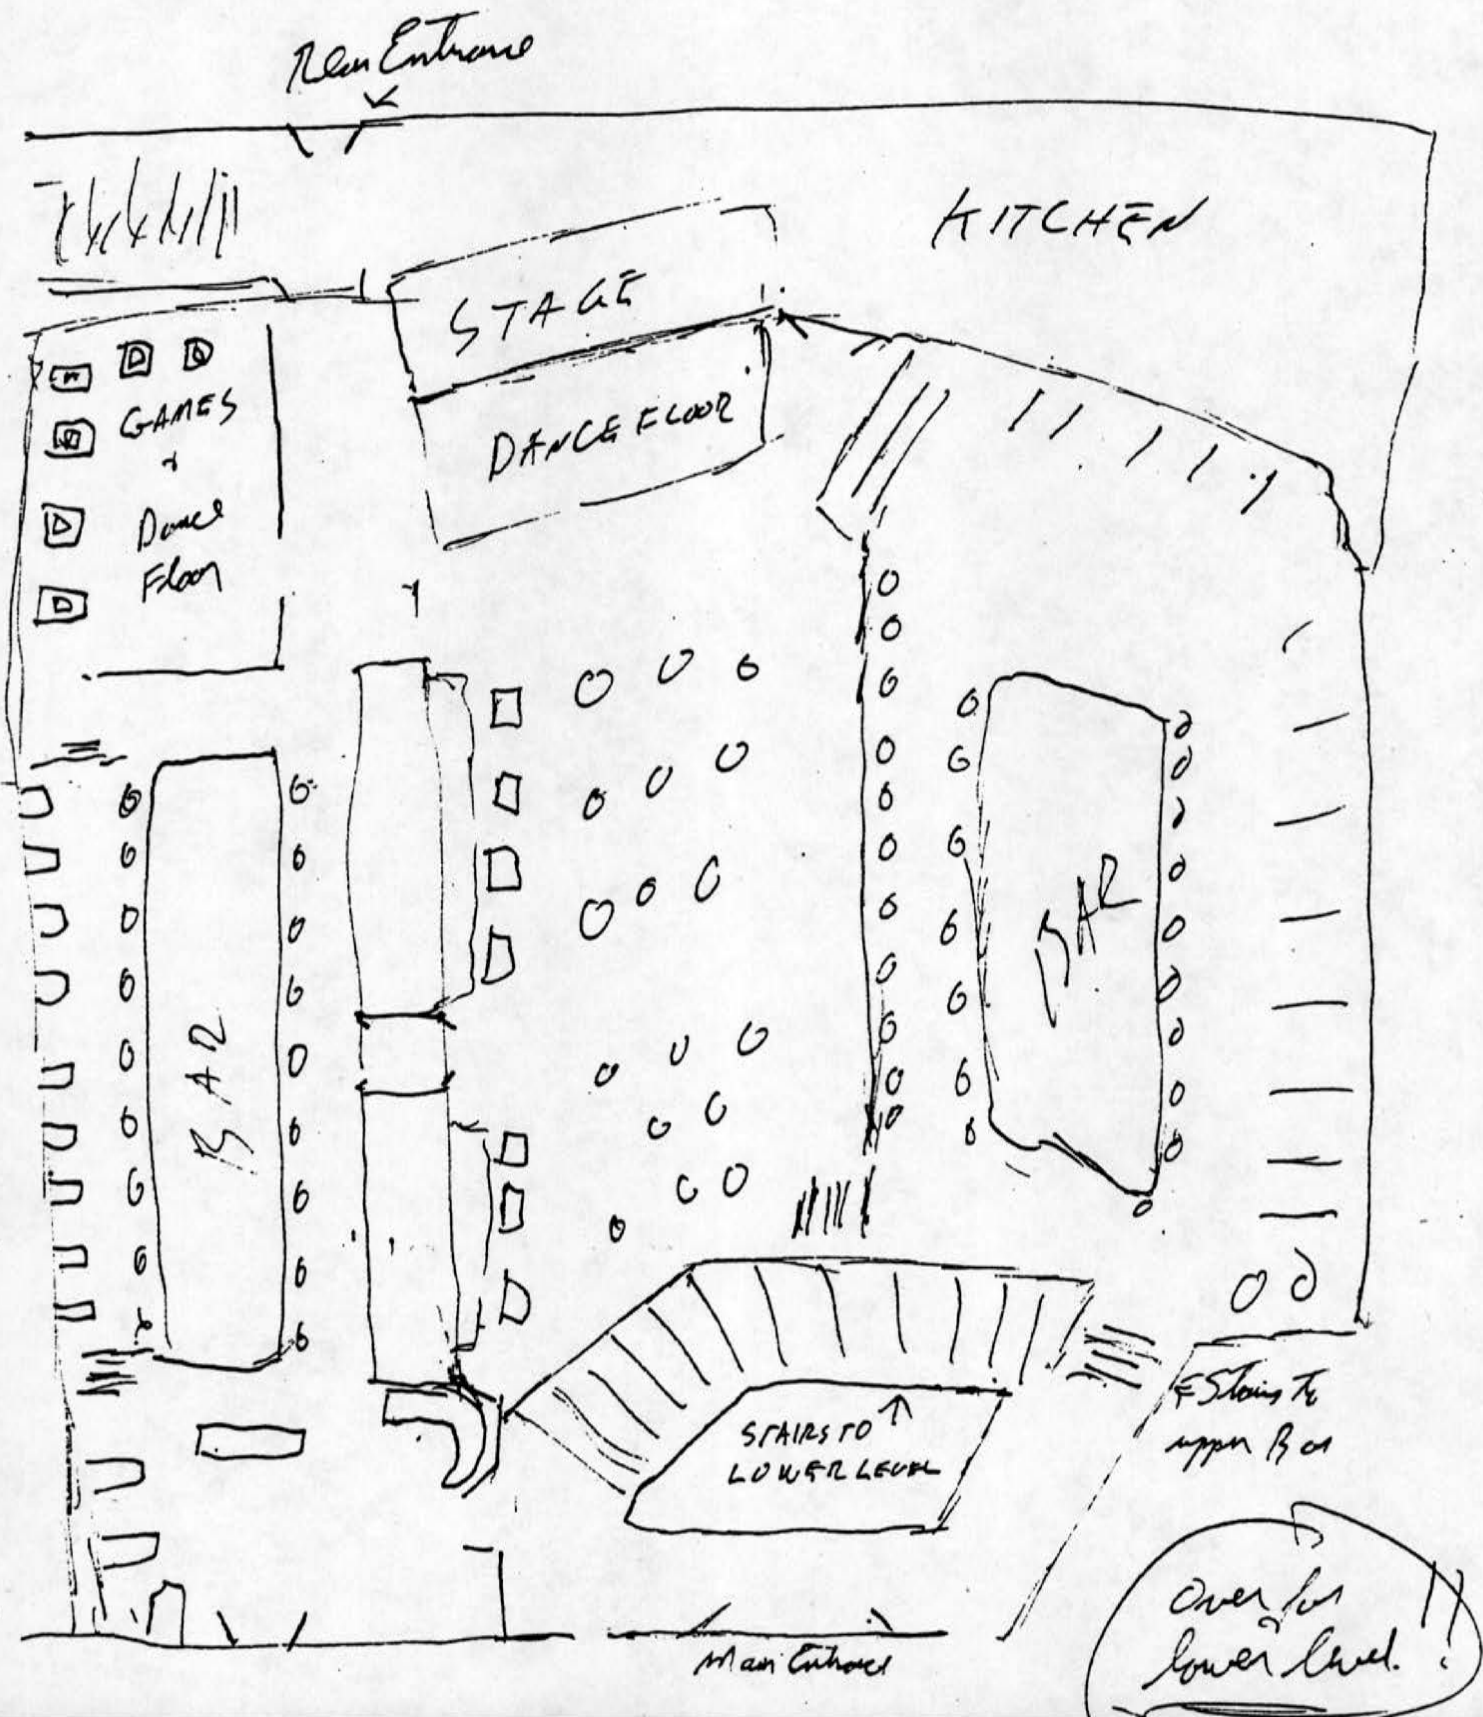 Rear Entrance
KITCHEN
STAGE
DANCE FLOOR
GAMES
+
Dance
Floor
BAR
BAR
STAIRS TO
LOWER LEVEL
Stairs To
upper Bar
Main Entrance
Over for
lower level. !!